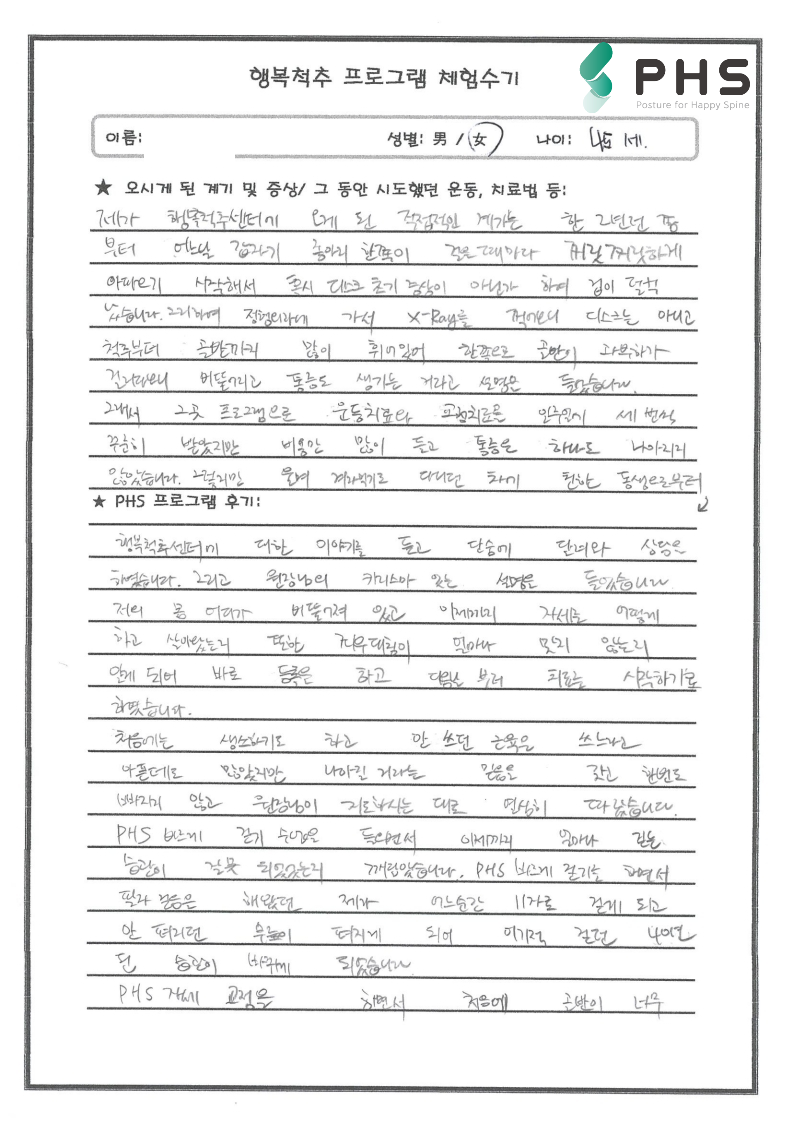 행복척추 프로그램 체험수기
PHS
Posture for Happy Spine
이름: 성별: 男 / 女 나이: 45 세.
★ 오시게 된 계기 및 증상/ 그 동안 시도했던 운동, 치료법 등:
제가 행복척추센터에 오게 된 직접적인 계기는 한 2년전 쯤
부터 어느날 갑자기 종아리 한쪽이 걸을때마다 찌릿찌릿하게
아파오기 시작해서 혹시 디스크 초기 증상이 아닌가 하여 겁이 덜컥
났습니다. 그리하여 정형외과에 가서 X-Ray를 찍어보니 디스크는 아니고
척추부터 골반까지 많이 휘어있어 한쪽으로 골반이
걷다보니 비뚤어지고 통증도 생기는 거라고 설명을 들었습니다.
그래서 그곳 프로그램으로 운동치료와 도수치료를 일주일에 세 번씩
꾸준히 받았지만 비용만 많이 들고 통증은 하나도 나아지지
않았습니다. 그렇지만 울며 겨자먹기로 다니던 차에 친한 동생으로부터
★ PHS 프로그램 후기:
행복척추센터에 대한 이야기를 듣고 단숨에 달려와 상담을
하였습니다. 그리고 원장님의 카리스마 있는 설명을 들었습니다.
저의 몸 어디가 비뚤어져 있고 이제까지 자세를 어떻게
하고 살아왔는지 또한 좌우대칭이 얼마나 맞지 않는지
알게 되어 바로 등록을 하고 다음날 부터 치료를 시작하기로
하였습니다.
처음에는 생소하기도 하고 안 쓰던 근육을 쓰느라고
아플데도 많았지만 나아질 거라는 믿음을 갖고 한번도
빠지지 않고 원장님이 지도하시는 대로 열심히 따랐습니다.
PHS 바르게 걷기 수업을 들으면서 이제까지 얼마나 걷는
습관이 잘못 되었었는지 깨달았습니다. PHS 바르게 걷기를 하면서
팔자 걸음을 해왔던 제가 어느순간 11자로 걷게 되고
안 펴지던 무릎이 펴지게 되어 어기적 걷던
된 습관이 바뀌게 되었습니다.
PHS 자세 교정을 하면서 처음에 골반이 너무